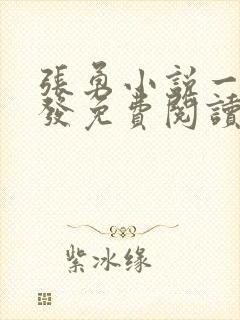 張勇小說一
發免費閱讀
紫冰缘